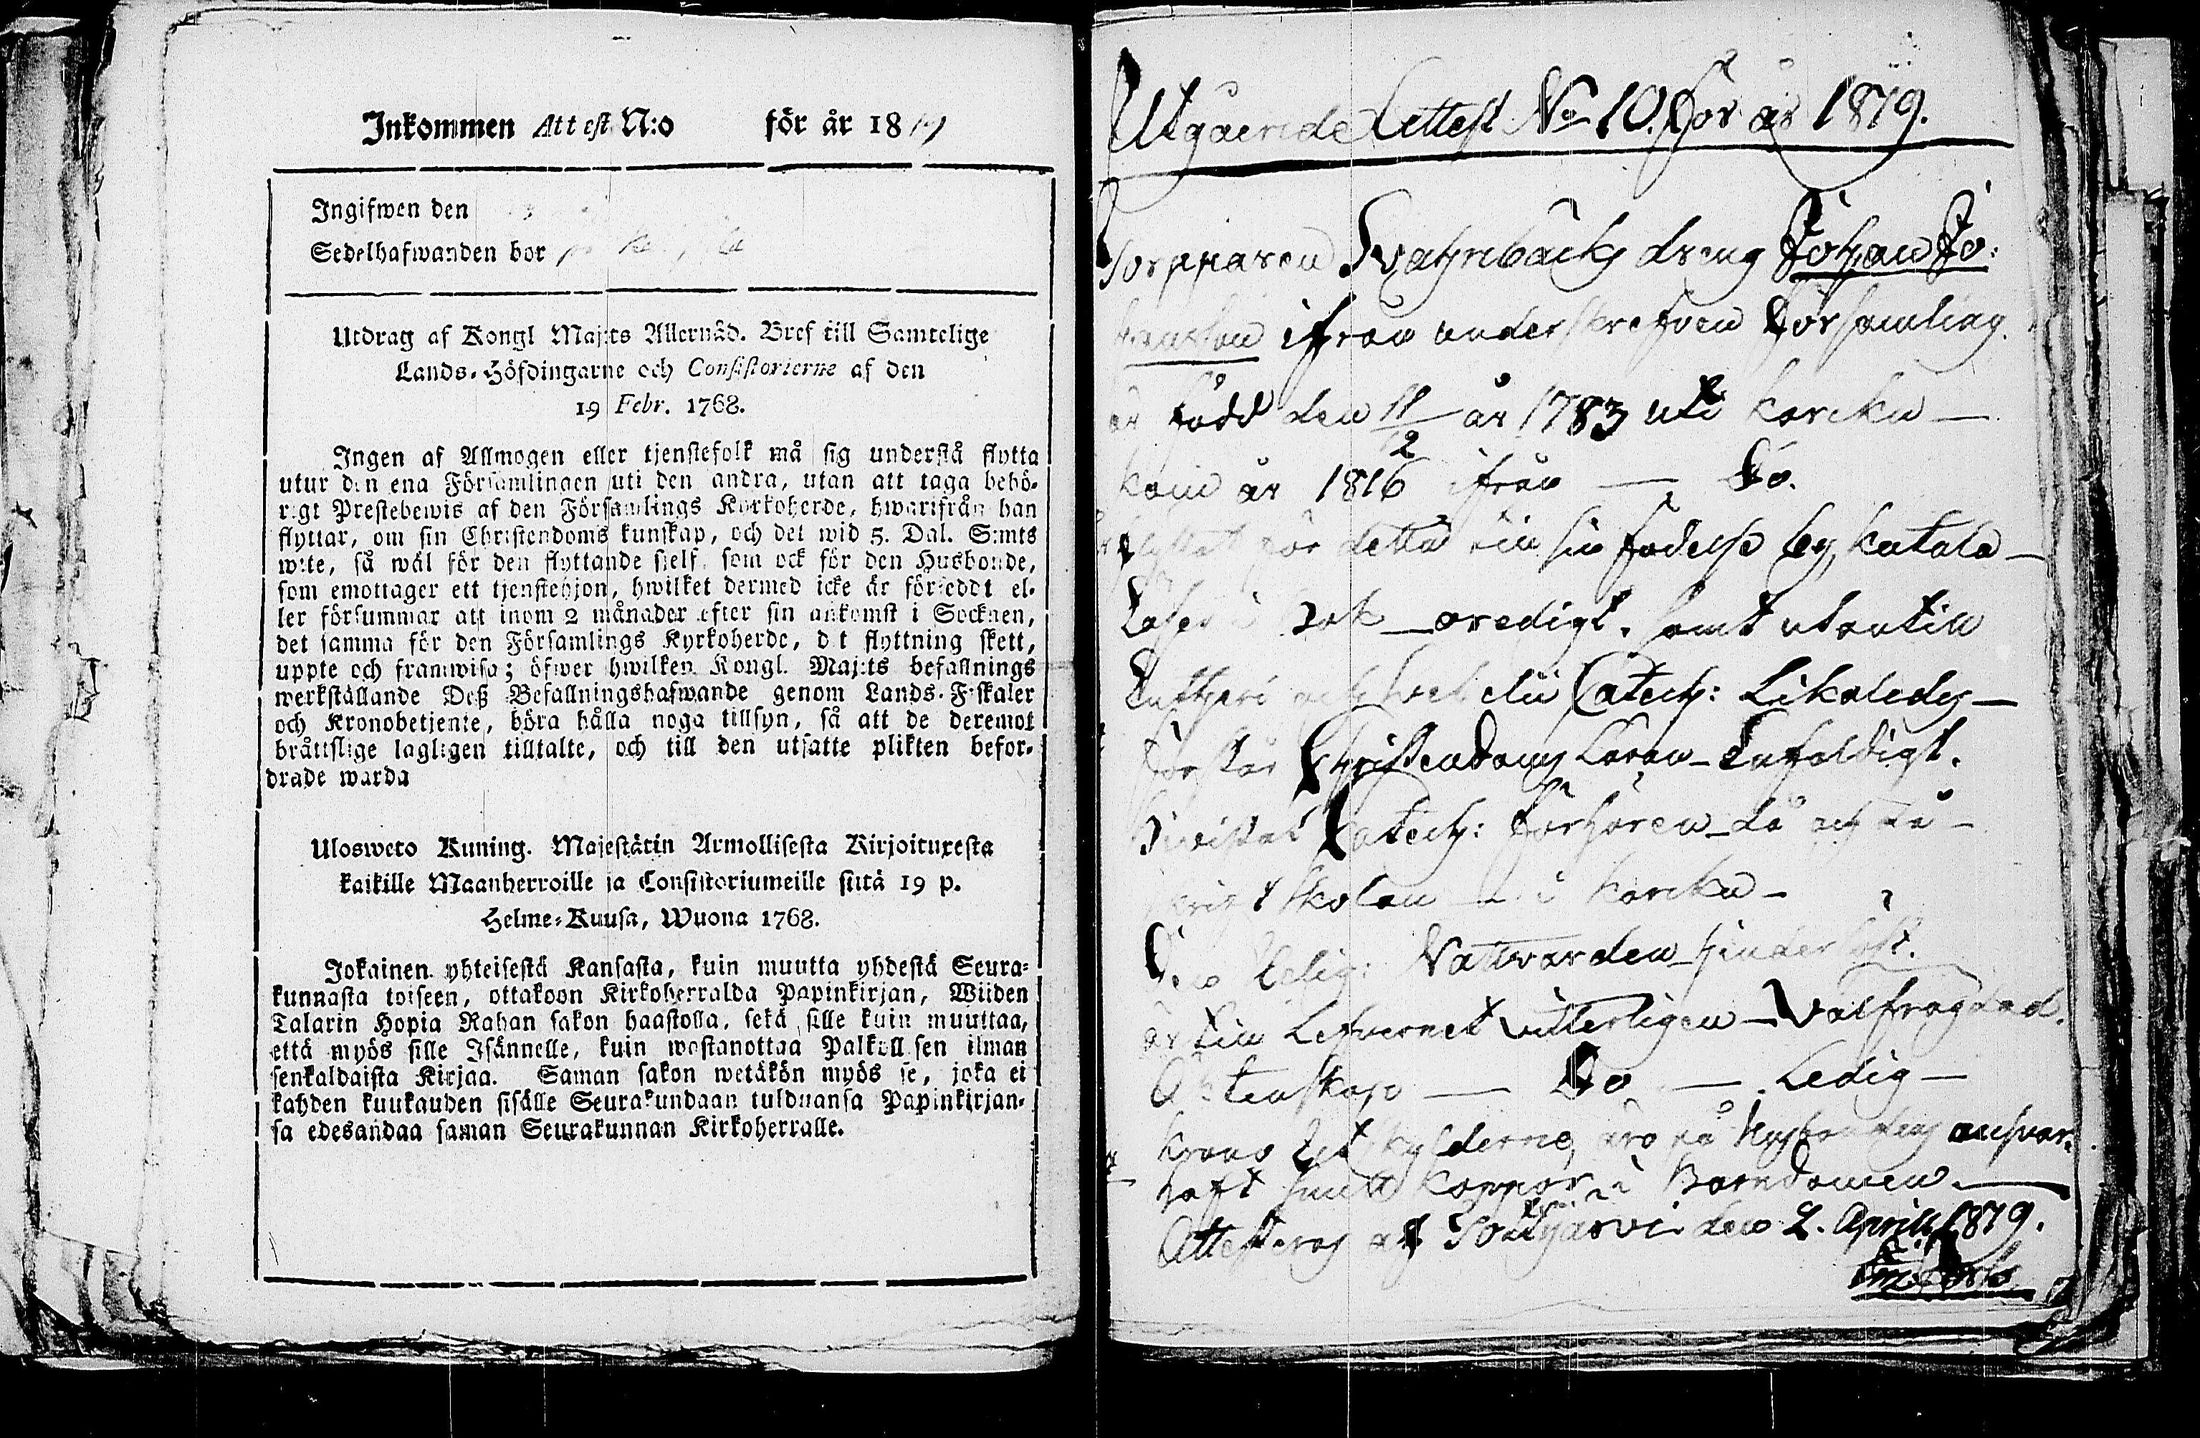 Inkommen Attest N:o för år 1819
Ingifwen den
Sedelhafwanden bor
Utdrag af Kongl Maj:ts Allernåd. Bref till Samtelige
Lands-Höfdingarne och Consistorierne af den
19 Febr. 1768.
Ingen af Allmogen eller tjenstefolk må sig understå flytta
utur den ena Församlingen uti den andra, utan att taga behö-
rigt Prestebewis af den Församlings Kyrkoherde, hwarifrån han
flyttar, om sin Christendoms kunskap, och det wid 5. Dal. S:mts
wite, så wäl för den flyttande sielf, som ock för den Husbonde,
som emottager ett tjenstehjon, hwilket dermed icke är förseddt el-
ler försummar att inom 2 månader efter sin ankomst i Socknen,
det samma för den Församlings Kyrkoherde, dit flyttning skett,
uppte och framwisa; öfwer hwilken Kongl. Maj:ts befallnings
werkställande Deß Befallningshafwande genom Lands-Fiskaler
och Kronobetjente, böra hålla noga tillsyn, så att de deremot
bråttslige lagligen tilltalte, och till den utsatte plikten befor-
drade warda
Ulosweto Kuning. Majestätin Armollisesta Kirjoituxesta
kaikille Maanherroille ja Consistoriumeille siitä 19 p.
Helme-Kuusa, Wuona 1768.
Jokainen yhteisestä Kansasta, kuin muutta yhdestä Seura-
kunnasta toiseen, ottakoon Kirkoherralda Papinkirjan, Wiiden
Talarin Hopia Rahan sakon haastolla, sekä sille kuin muuttaa,
että myös sille Isännelle, kuin wastanottaa Palkollisen ilman
senkaldaista Kirjaa. Saman sakon wetäkön myös se, joka ei
kahden kuukauden sisälle Seurakundaan tulduansa Papinkirjan-
sa edesandaa saman Seurakunnan Kirkoherralle.
Utgående Attest No 10. för år 1819.
Torpparen Svahnbäcks dreng Johan Jo:
hansson ifrån underskrefven Församling.
är född den 11/12 år 1783 uti Karcku —
kom år 1816 ifrån — Do.
flyttat för detta till sin födelse by, Kutala —
Läser i bok — oredigt. samt utantill
Lutheri och Catech: Likaledes —
förstår Christendoms Läran — Enfaldigt.
bivistat Catech: förhören — då och då —
skrift skolan — i Karcku —
Den Helig: Nattvarden — hinderlöst.
är till Lefvernet vitterligen — Välfrägdad.
Äktenskap — Do — Ledig —
Krono Utskylderne, äro på Husbondens ansvar.
haft små Koppor i Barndomen. —
Attesteras af Sottjärvi den 2. April 1819.